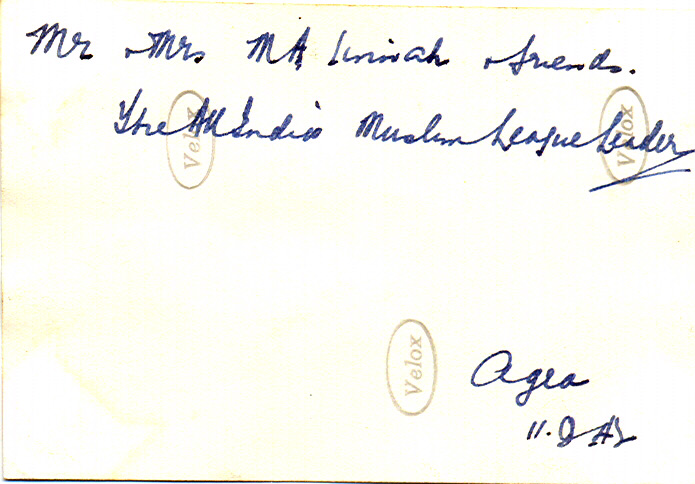 Mr & Mrs MA Jinnah & friends.
The All India Muslim League Leader
Velox
Velox
Velox
Agra